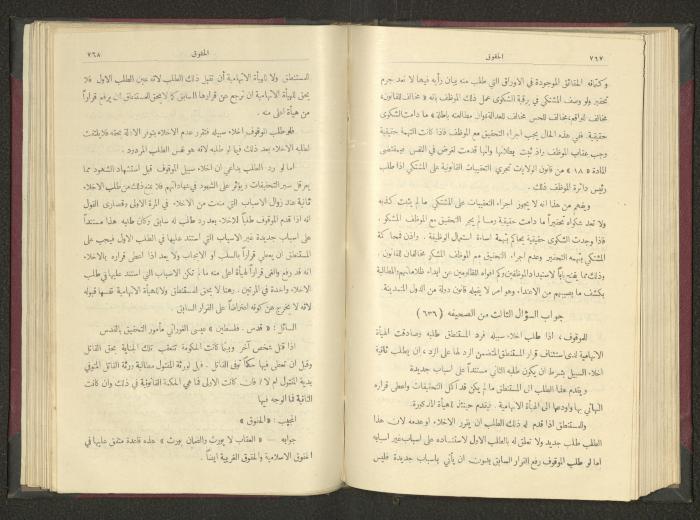 ٧٦٧
الحقوق
وكتمانه الحقائق الموجودة في الاوراق التي طلب منه بيان رأيه فيها لا تعد جرم
تحقير ولو وصف المشتكي في برقية الشكوى عمل ذلك الموظف بانه « مخالف للقانون،
مخالف للواقع، مخالف للحس مخالف للعدالة وان مطالعته باطلة » ما دامت الشكوى
حقيقية. ففي هذه الحال يجب اجراء التحقيق مع الموظف فاذا كانت التهمة حقيقية
وجب عقاب الموظف واذ ثبت بطلانها وانها قدمت لغرض في النفس فبمقتضى
المادة « ١٨ » من قانون الولايات تجري التعقيبات القانونية على المشتكي اذا طلب
رئيس دائرة الموظف ذلك .
ويفهم من هذا انه لا يجوز اجراء التعقيبات على المشتكي ما لم يثبت كذبه
ولا تعد شكواه تحقيراً ما دامت حقيقة وما لم يجر التحقيق مع الموظف المشكو .
فاذا وجدت الشكوى حقيقية يحاكم بتهمة اساءة استعمال الوظيفة . واذن فمحاكمة
المشتكي بتهمة التحقير وعدم اجراء التحقيق مع الموظف المشكو مخالفان للقانون .
وذلك مما يفتح باباً لاستبداد الموظفين وكم افواه المظلومين عن ابداء ظلاماتهم والمطالبة
بكشف ما يصيبهم من الاعتداء وهو امر لا يقبله قانون دولة من الدول المتمدينة.
جواب السؤال الثالث من الصحيفه (٦٣٦)
للموقوف ، اذا طلب اخلاء سبيله فرد المستنطق طلبه وصادقت الهيأة
الاتهامية لدى استئناف قرار المستنطق المتضمن الرد لها على الرد ، ان يطلب ثانية
اخلاء السبيل بشرط ان يكون طلبه الثاني مستنداً على اسباب جديدة
ويقدم هذا الطلب الى المستنطق ما لم يكن قد اكمل التحقيقات واعطى قراره
النهائي بها واودعها الى الهيأة الاتهامية . فيقدم حينئذ للهيأة المذكورة.
والمستنطق اذا قدم له ذلك الطلب ان يقرر الاخلاء او عدمه لان هذا
الطلب طلب جديد ولا تعلق له بالطلب الاول لاستناده على اسباب غير اسبابه
اما لو طلب الموقوف رفع القرار السابق بدون ان يأتي باسباب جديدة فليس
٧٦٨
الحقوق
للمستنطق ولا للهيأة الاتهامية أن تقبل ذلك الطلب لانه عين الطلب الاول فلا
يحق للهيأة الاتهامية ان ترجع عن قرارها السابق كما لا يحق للمستنطق ان يرفع قراراً
من هيأة اعلى منه .
فلو طلب الموقوف اخلاء سبيله فتقرر عدم الاخلاء بتوفر الادلة بحقه فلا يلتفت
لطلبه الاخلاء بعد ذلك فيما لو طلبه لانه هو نفس الطلب المردود .
اما لو رد الطلب بداعي ان اخلاء سبيل الموقوف قبل استشهاد الشهود مما
يعرقل سير التحقيقات ويؤثر على الشهود في شهاداتهم فلا يمنع ذلك من طلب الاخلاء
ثانية عند زوال الاسباب التي منعت من الاخلاء في المرة الاولى وقصارى القول
انه اذا قدم الموقوف طلباً للاخلاء بعد رد طلب له سابق وكان طلبه هذا مستنداً
على اسباب جديدة غير الاسباب التي استند عليها في الطلب الاول فيجب على
المستنطق ان يعطي قراراً بالسلب او الايجاب ولا يعد اذا اعطى قراره بالاخلاء
انه قد رفع والغى قراراً لهيأة اعلى منه ما لم تكن الاسباب التي استند عليها في طلب
الاخلاء واحدة في المرتين . وهنا لا يحق للمستنطق ولا للهيأة الاتهامية نفسها قبوله
لانه لا يخرج عن كونه اعتراضاً على القرار السابق
السائل : « قدس . فلسطين » عيسى الفوراني مأمور التحقيق بالقدس
اذا قتل شخص آخر وبينما كانت الحكومة تتعقب تلك الجناية بحق القاتل
وقبل ان تعطى فيها حكماً توفي القاتل . فهل لورثة المقتول مطالبة ورثة القاتل المتوفي
بدية المقتول ام لا ? فان كانت الاولى فما هي الحكمة القانونية في ذلك وان كانت
الثانية فما الوجه فيها
المجيب : « الحقوق »
جوابه — « العقاب لا يورث والضمان يورث » هذه قاعدة متفق عليها في
الحقوق الاسلامية والحقوق الغربية ايضاً .